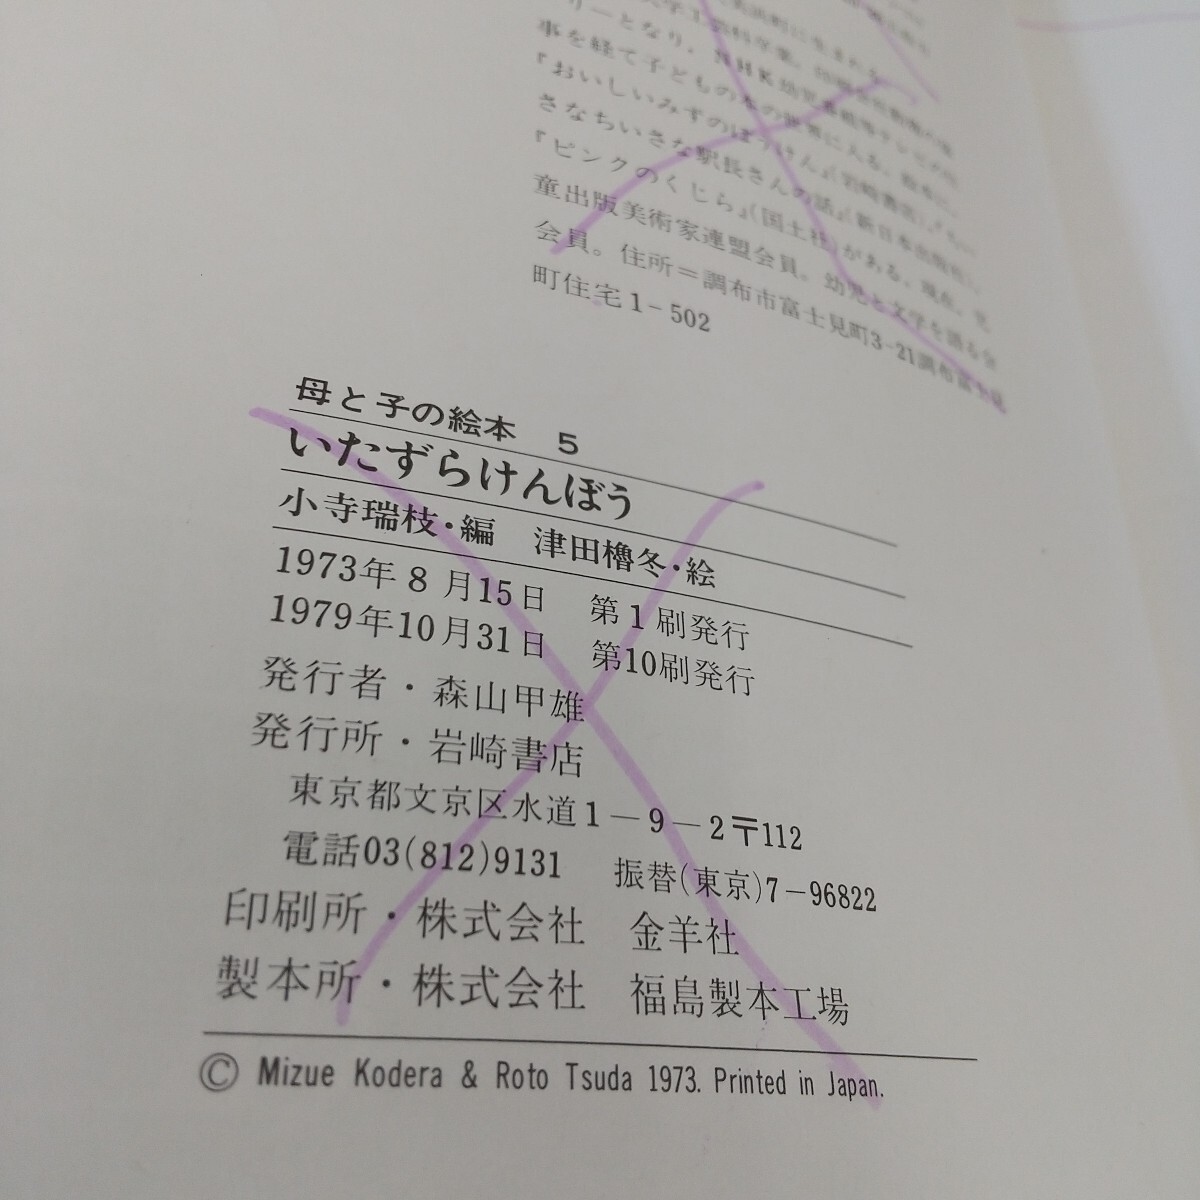 リーとなり，NHK幼児番組等テレビの仕
事を経て子どもの本の世界に入る。絵本に，
『おいしいみずのぼうけん』（岩崎書店），『ちい
さなちいさな駅長さんの話』（新日本出版社），
『ピンクのくじら』（国土社）がある。現在，児
童出版美術家連盟会員。幼児と文学を語る会
会員。住所＝調布市富士見町3-21調布富士見
町住宅1-502
母と子の絵本　5
いたずらけんぼう
小寺瑞枝・編　津田櫓冬・絵
1973年8月15日　第1刷発行
1979年10月31日　第10刷発行
発行者・森山甲雄
発行所・岩崎書店
東京都文京区水道1－9－2〒112
電話03(812)9131　振替(東京)7－96822
印刷所・株式会社　金羊社
製本所・株式会社　福島製本工場
© Mizue Kodera & Roto Tsuda 1973. Printed in Japan.